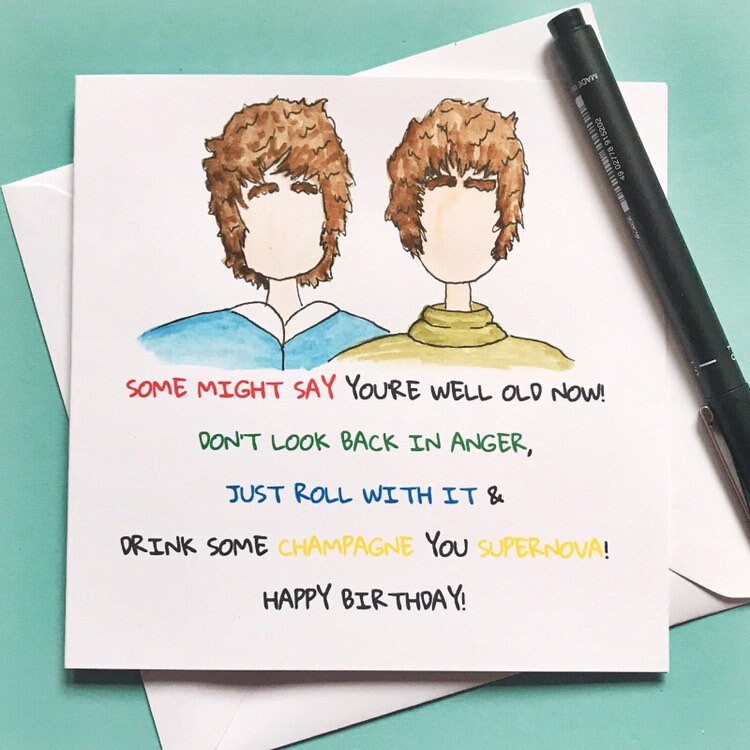 SOME MIGHT SAY YOU'RE WELL OLD NOW!
DON'T LOOK BACK IN ANGER,
JUST ROLL WITH IT &
DRINK SOME CHAMPAGNE YOU SUPERNOVA!
HAPPY BIRTHDAY!
49 02778 915202
MADE